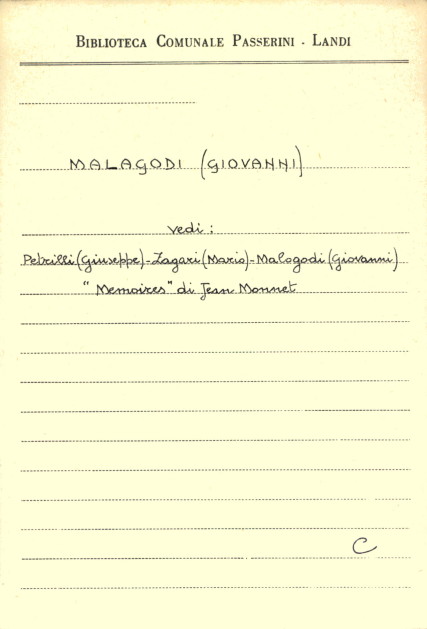 BIBLIOTECA COMUNALE PASSERINI - LANDI
MALAGODI (GIOVANNI)
vedi :
Petrilli (Giuseppe) - Zagari (Mario) - Malogodi (Giovanni)
“Memoires” di Jean Monnet
C